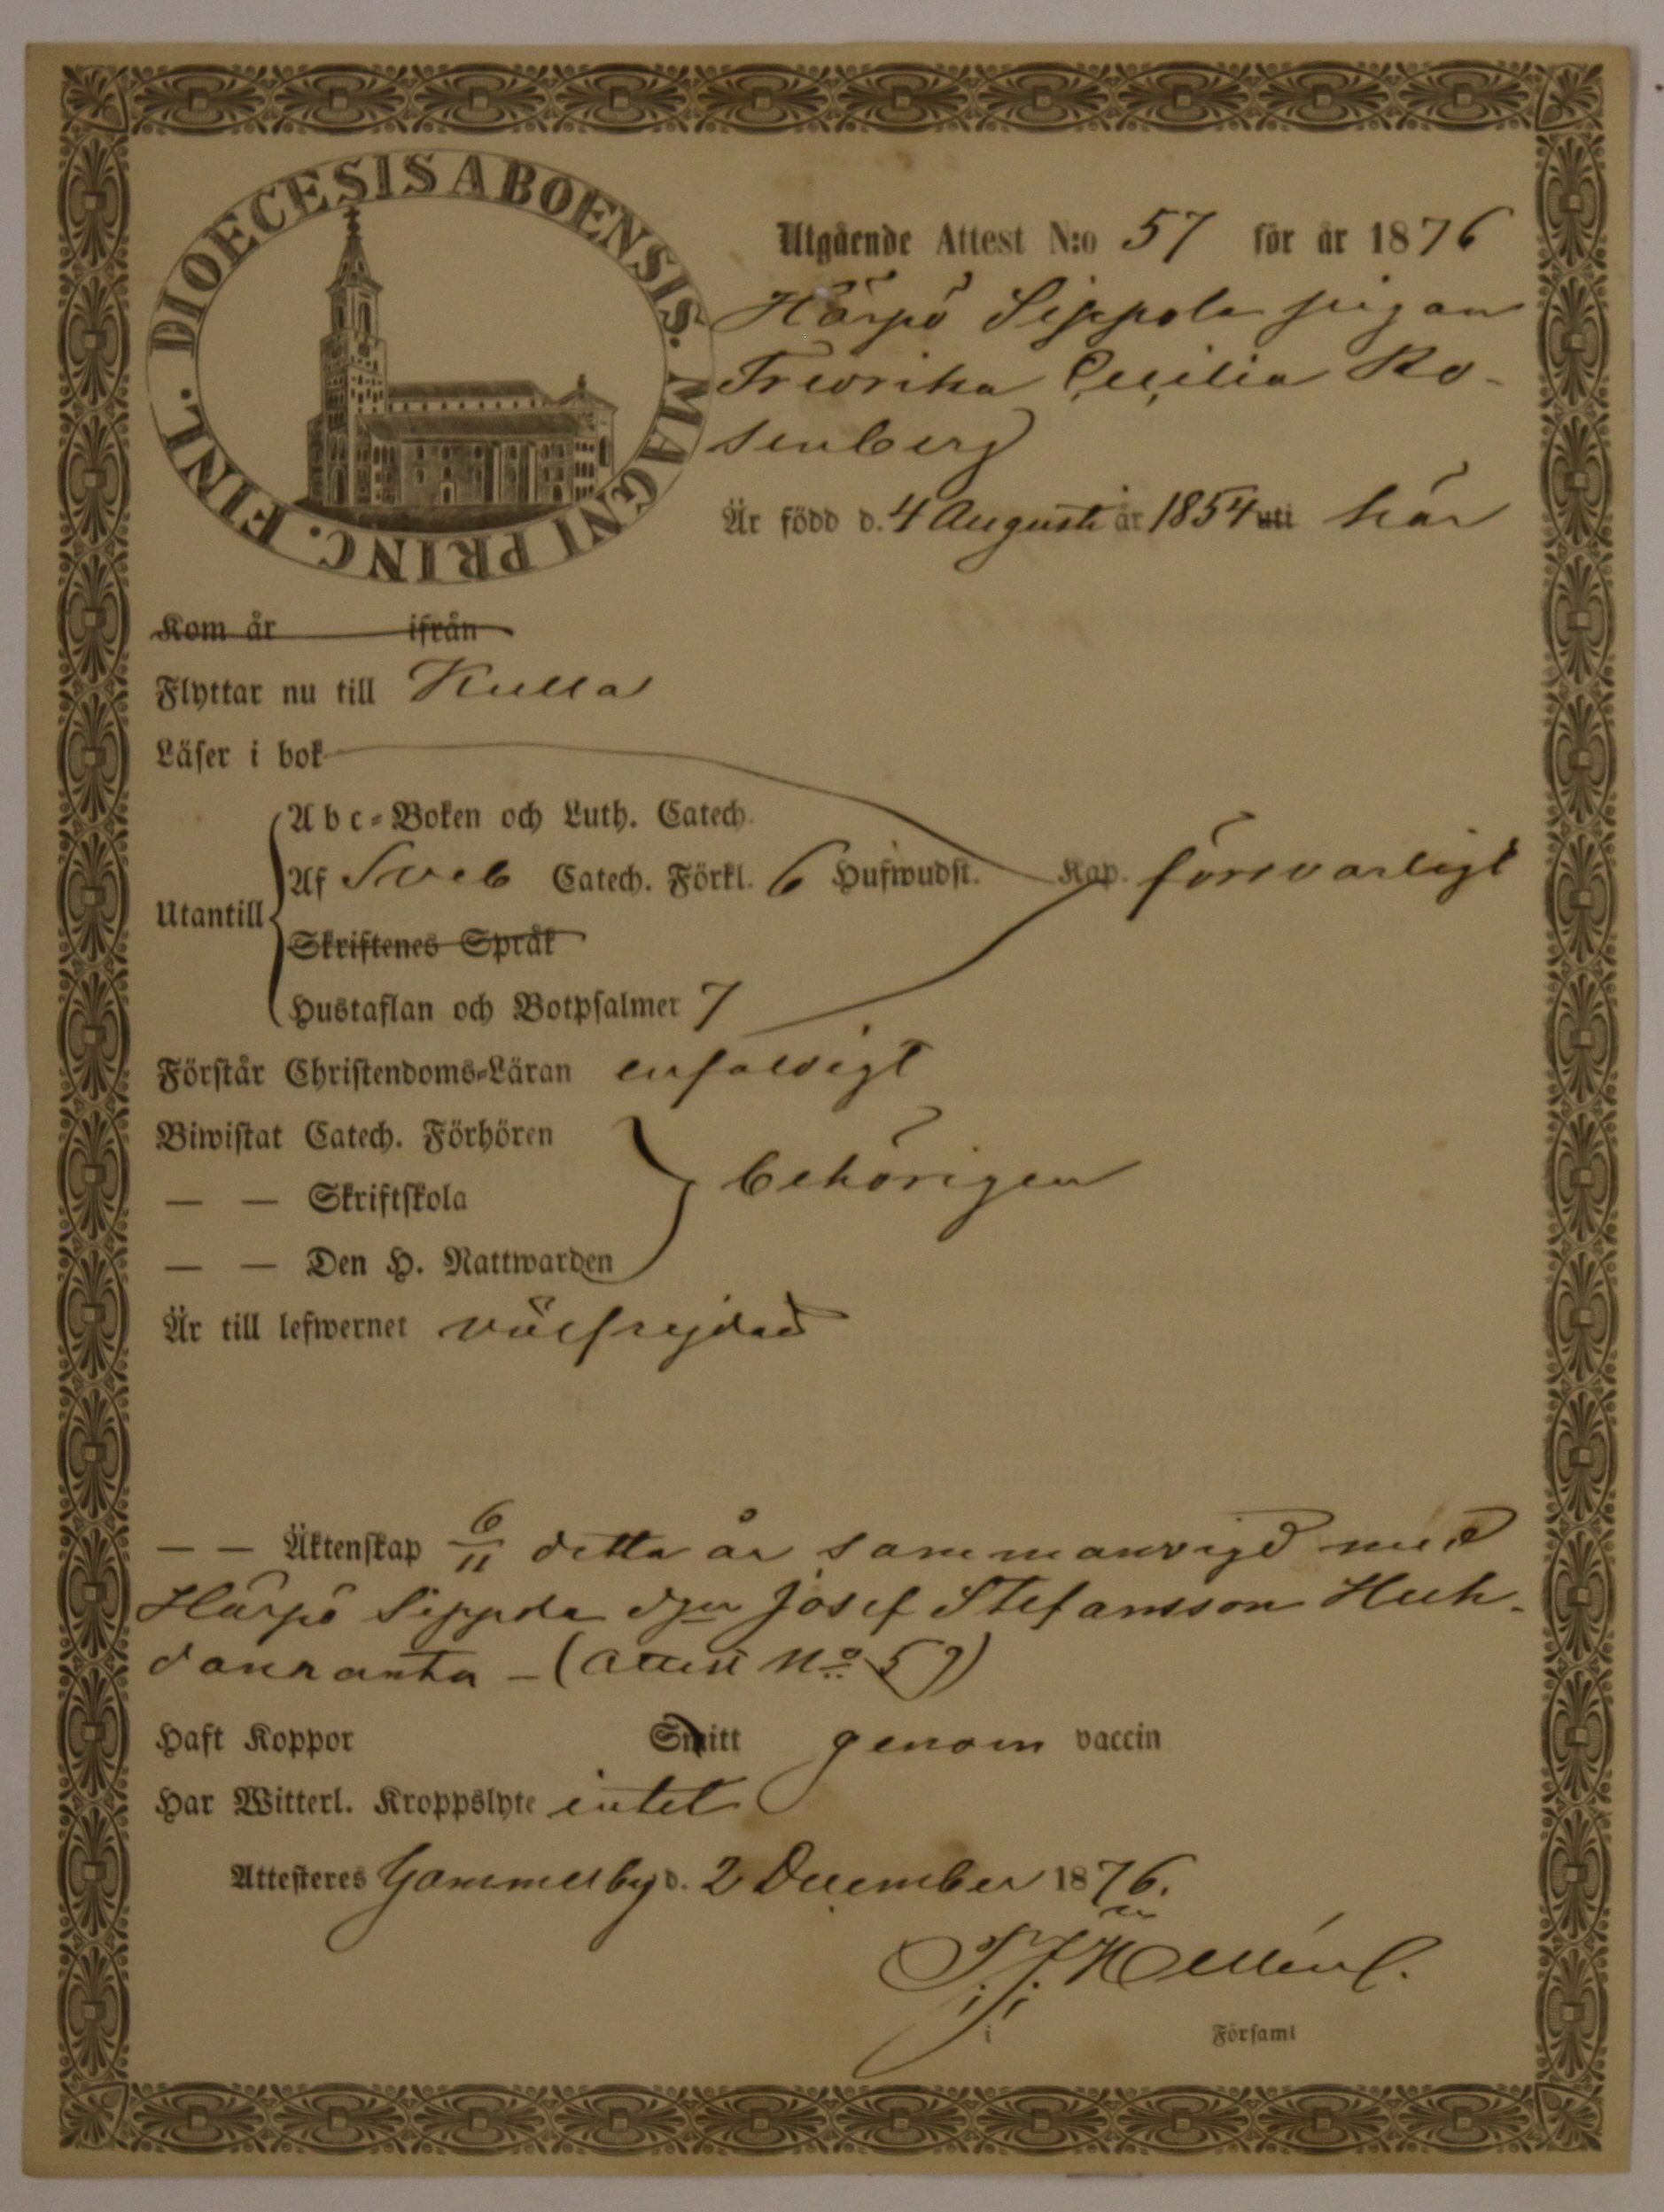 DIOECESIS ABOENSIS. MAGNI PRINC. FINL.
Utgående Attest N:o 57 för år 1876
Härpö Seppola pigan
Fredrika Cecilia Ro-
senberg
Är född d. 4 Augusti år 1854 uti här
Kom år ifrån
Flyttar nu till Kulla
Läser i bok
Abc-Boken och Luth. Catech.
Af Sveb Catech. Förkl. 6 Hufwudst. Kap. försvarligt
Utantill
Skriftenes Språk
Hustaflan och Botpsalmer 7
Förstår Christendoms-Läran enfaldigt
Biwistat Catech. Förhören
— — Skriftskola behörigen
— — Den H. Nattwarden
Är till lefwernet välfrejdad
— — Äktenskap 6/11 detta år sammanvigd med
Härpö Seppola Josef Stefansson Huh-
danranta - (Attest No 57)
Haft Koppor Smitt genom vaccin
Har Witterl. Kroppslyte intet
Attesteres Gammelby d. 2 December 1876.
i Församl